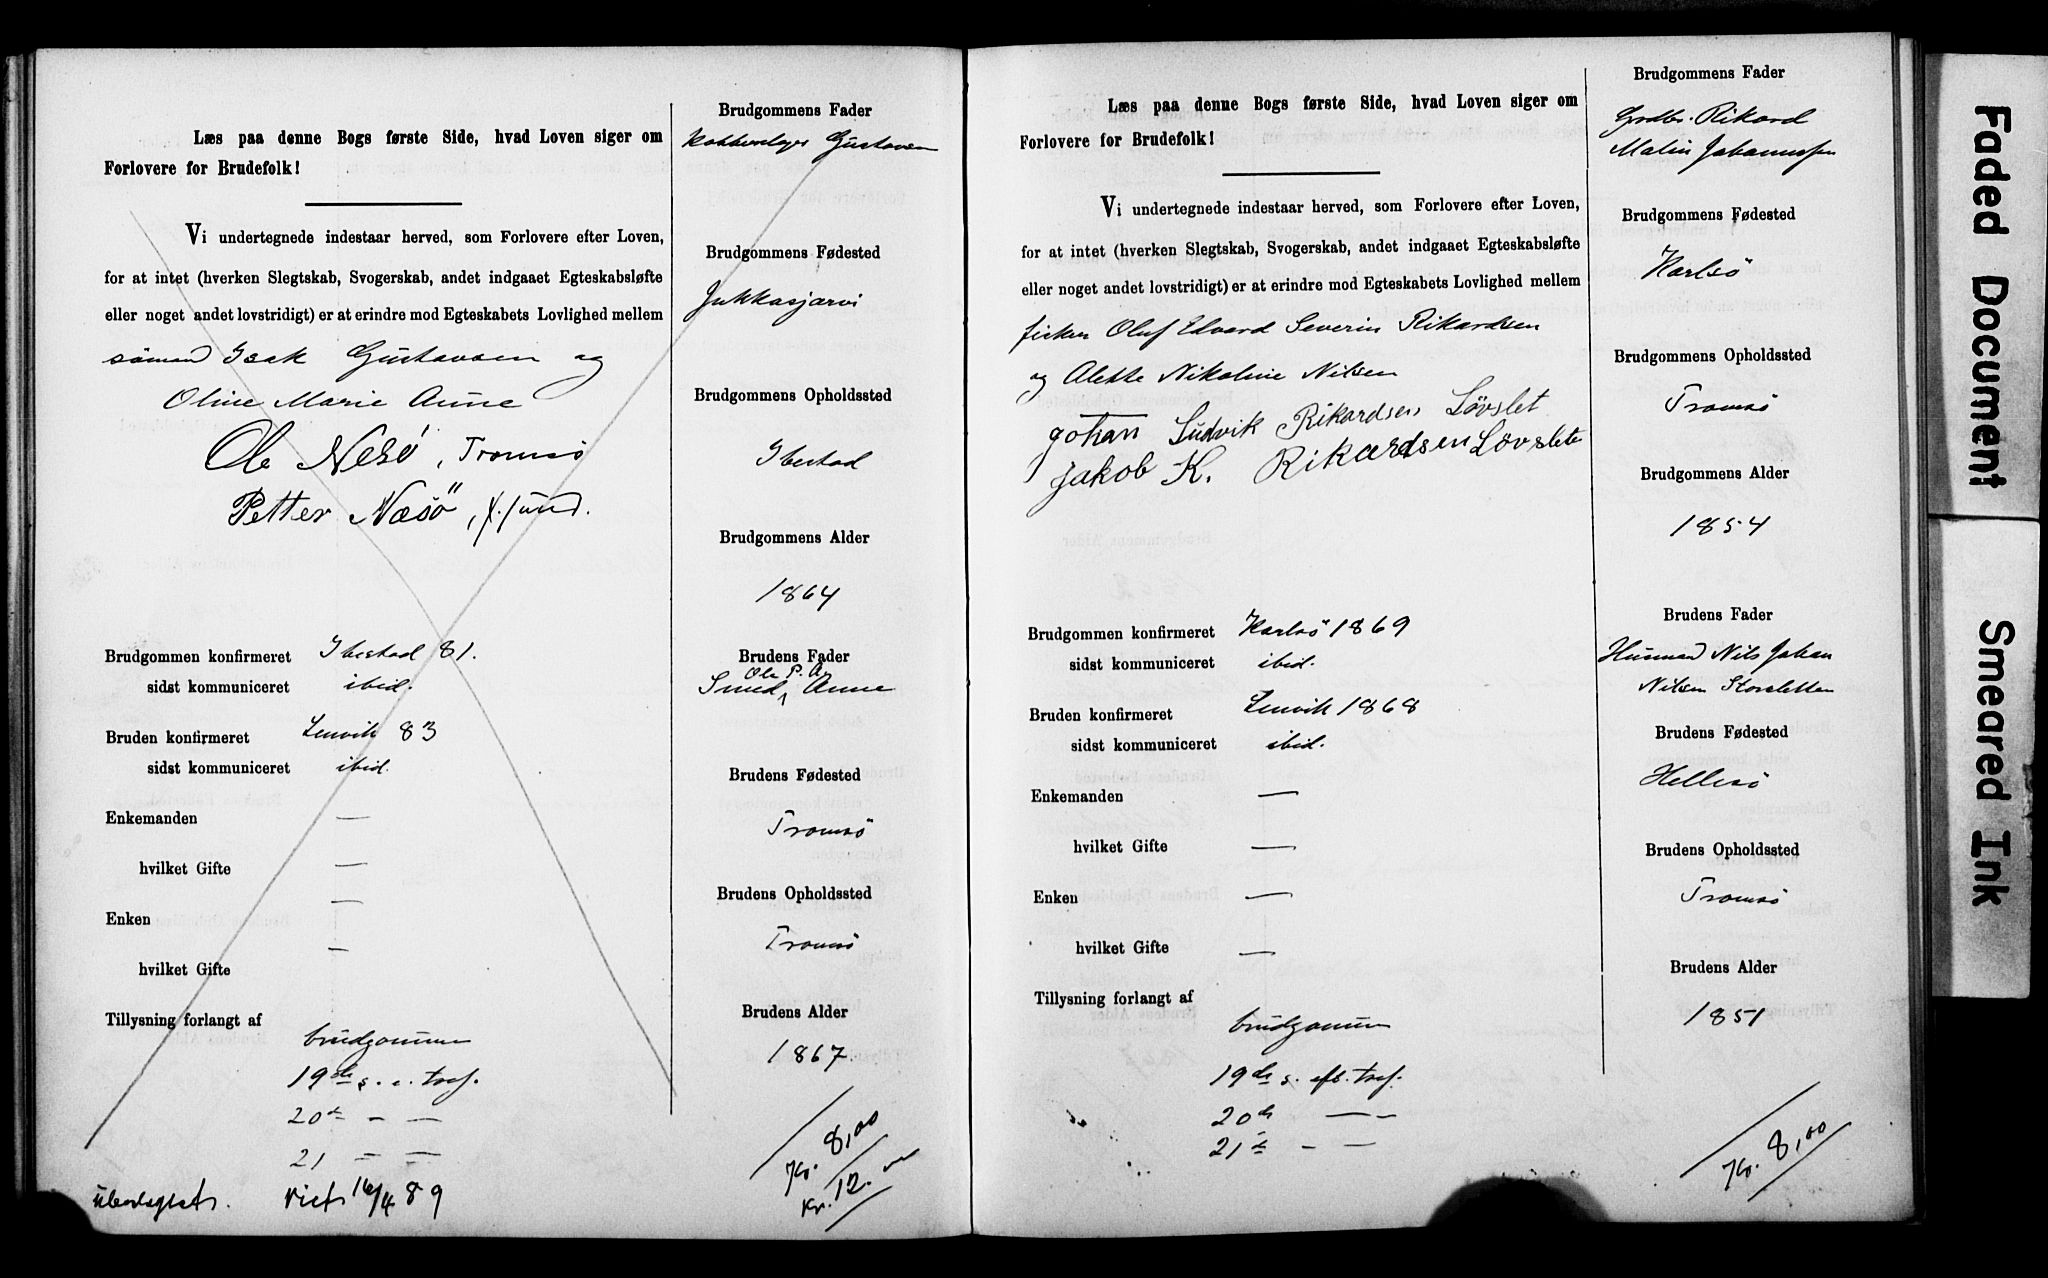 Læs paa denne Bogs første Side, hvad Loven siger om
Forlovere for Brudefolk!
Vi undertegnede indestaar herved, som Forlovere efter Loven,
for at intet (hverken Slegtskab, Svogerskab, andet indgaaet Egteskabsløfte
eller noget andet lovstridigt) er at erindre mod Egteskabets Lovlighed mellem
sömand Isak Gustavsen og
Oline Marie Aune
Ole Nesö, Tromsö
Petter Næsö
Brudgommen konfirmeret Ibestad 81.
sidst kommuniceret ibid.
Bruden konfirmeret Lenvik 83
sidst kommuniceret ibid.
Enkemanden —
hvilket Gifte —
Enken —
hvilket Gifte —
Tillysning forlangt af
brudgommen
19de s. e. tref.
20de — —
21 — —
Viet 16/4 89
Brudgommens Fader
Gustavsen
Brudgommens Fødested
Jukkasjarvi
Brudgommens Opholdssted
Ibestad
Brudgommens Alder
1864
Brudens Fader
Ole P. A.
Smed Aune
Brudens Fødested
Tromsö
Brudens Opholdssted
Tromsö
Brudens Alder
1867
Kr. 8,00
Kr. 12.
Læs paa denne Bogs første Side, hvad Loven siger om
Forlovere for Brudefolk!
Vi undertegnede indestaar herved, som Forlovere efter Loven,
for at intet (hverken Slegtskab, Svogerskab, andet indgaaet Egteskabsløfte
eller noget andet lovstridigt) er at erindre mod Egteskabets Lovlighed mellem
fisker Oluf Edvard Severin Rikardsen
og Alette Nikoline Nilsen
Johan Ludvik Rikardsen Lövslet
Jakob K. Rikardsen Lövslete
Brudgommen konfirmeret Karlsö 1869
sidst kommuniceret ibid.
Bruden konfirmeret Lenvik 1868
sidst kommuniceret ibid.
Enkemanden —
hvilket Gifte —
Enken —
hvilket Gifte —
Tillysning forlangt af
brudgommen
19de s. eft. tref.
20de — —
21de — —
Brudgommens Fader
Grdbr. Rikard
Malin Johannesen
Brudgommens Fødested
Karlsö
Brudgommens Opholdssted
Tromsö
Brudgommens Alder
1854
Brudens Fader
Husmand Nils Johan
Nilsen Storsletten
Brudens Fødested
Hellesö
Brudens Opholdssted
Tromsö
Brudens Alder
1851
Kr. 8,00
Faded Document
Smeared Ink